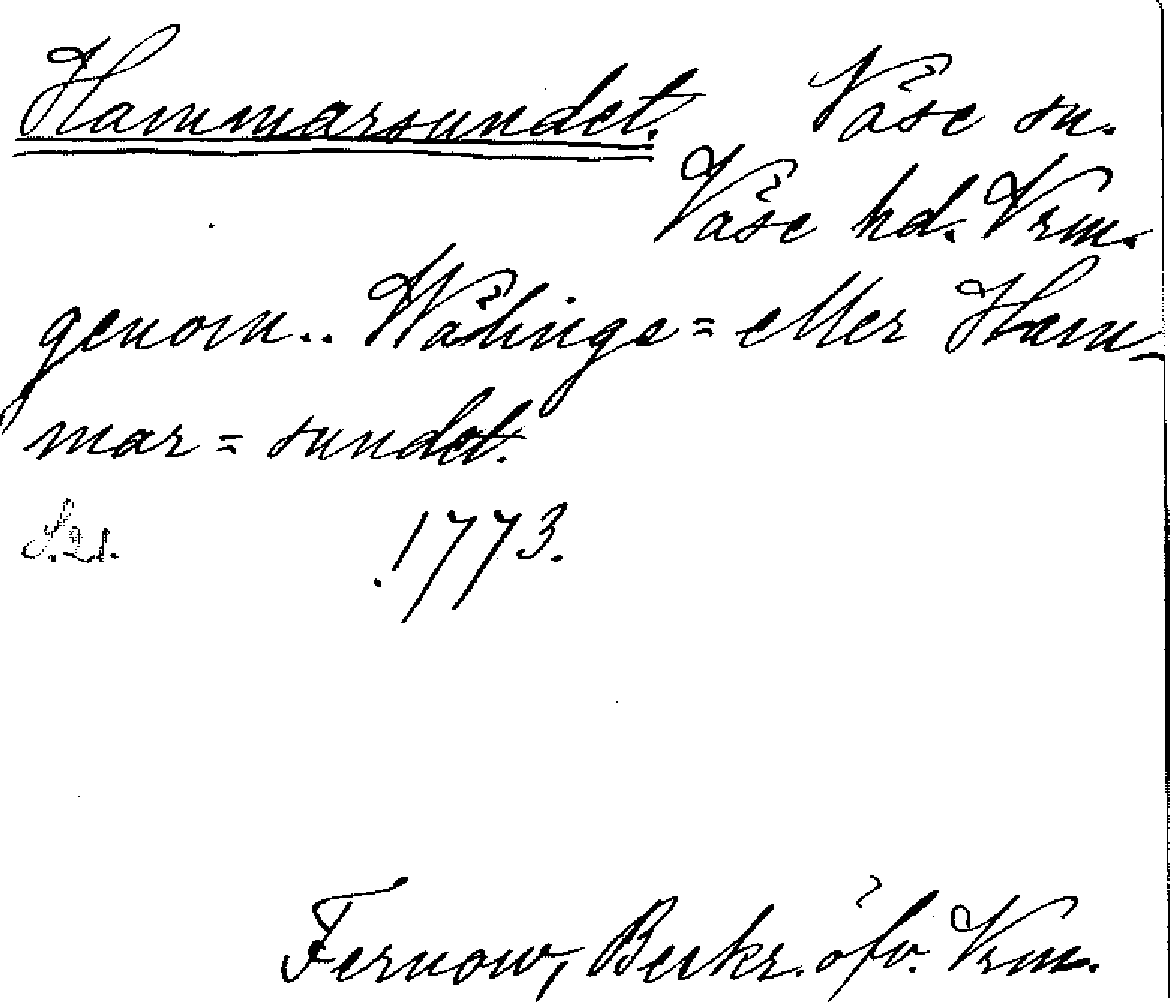 Hammarsundet. Väse sn.
Väse hd. Vrm.
genom.. Wålinge= eller Ham-
mar= sundet.
S. 21. 1773.
Fernow, Beskr. öfv. Vrm.